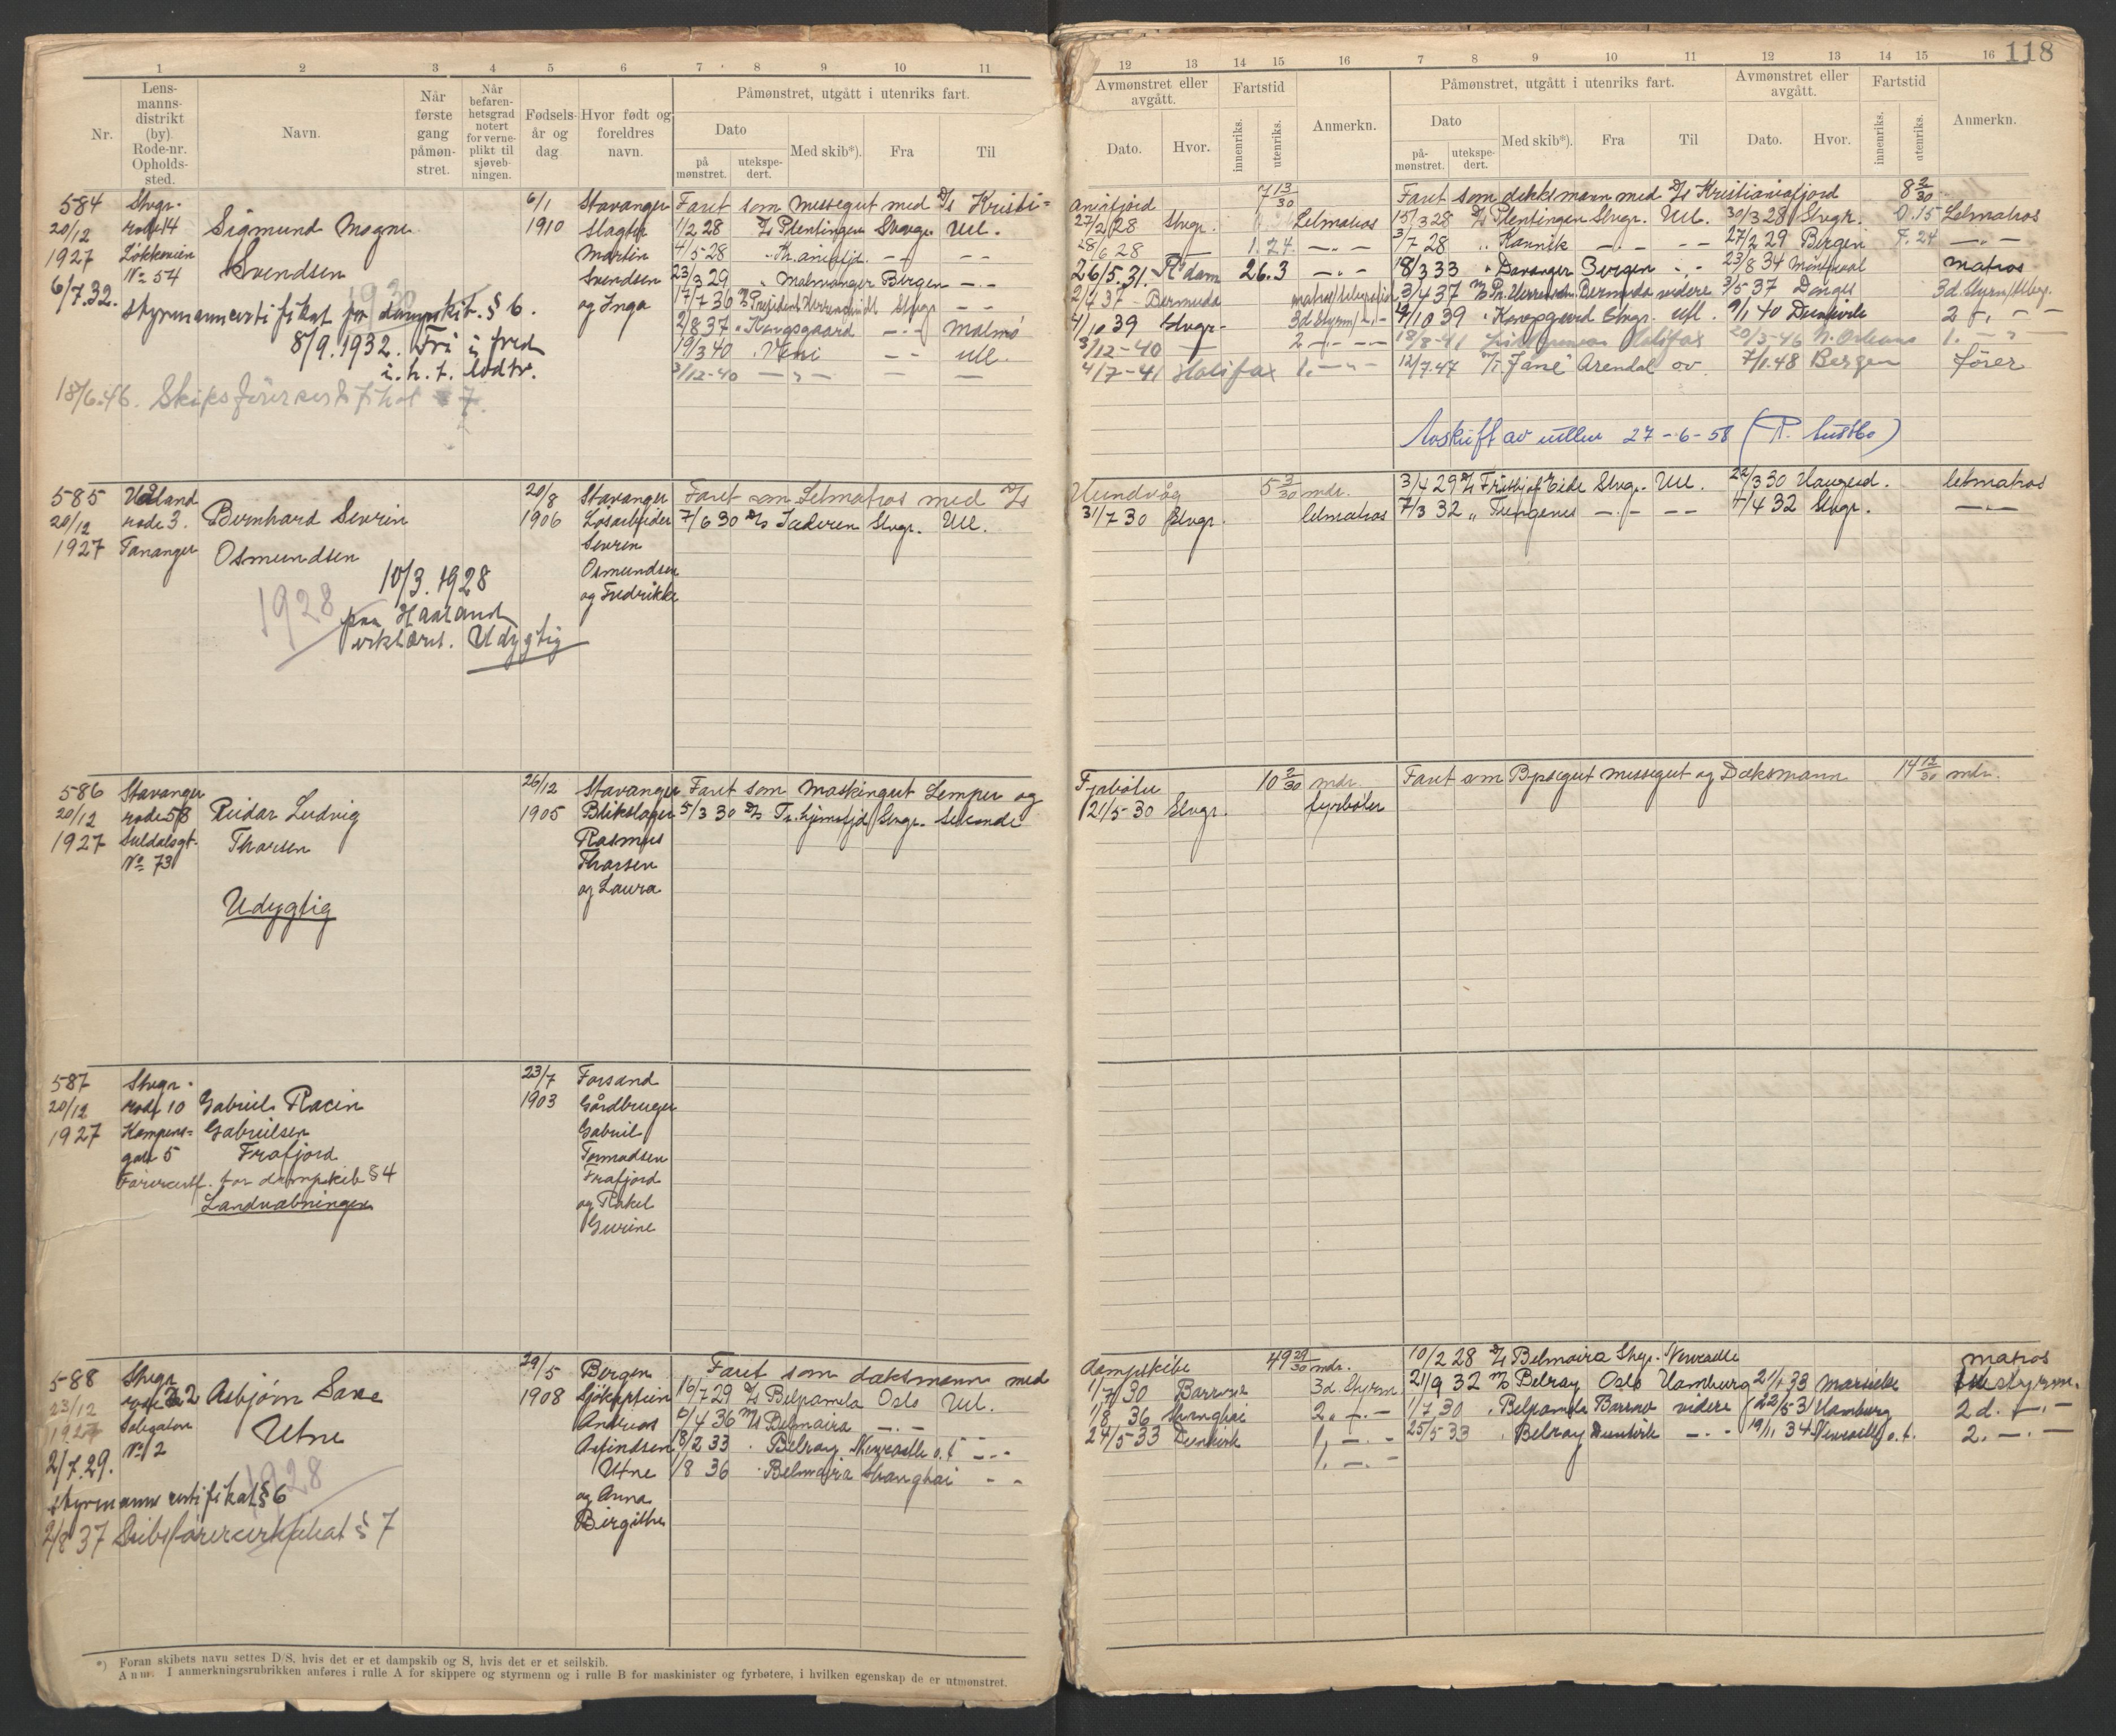 118
1 2 3 4 5 6 7 8 9 10 11
12 13 14 15 16 7 8 9 10 11 12 13 14 15 16
Nr.
Lens-
manns-
distrikt
(by).
Rode-nr.
Opholds-
sted.
Navn.
Når
første
gang
påmøn-
stret.
Når
befaren-
hetsgrad
notert
for verne-
plikt til
sjøveb-
ningen.
Fødsels-
år og
dag
Hvor født og
foreldres
navn.
Påmønstret, utgått i utenriks fart.
Dato
på
mønstret.
utekspe-
dert.
Med skib*).
Fra
Til
Avmønstret eller
avgått.
Dato.
Hvor.
Fartstid
innenriks.
utenriks.
Anmerkn.
Påmønstret, utgått i utenriks fart.
Dato
på-
mønstret.
utekspe-
dert.
Med skib*).
Fra
Til
Avmønstret eller
avgått.
Dato.
Hvor.
Fartstid
innenriks.
utenriks.
Anmerkn.
584
20/12
1927
6/7.32.
Stvgr.
rode 14
Løkkeveien
No 54
Sigmund Mogne
Svendsen
1930
styrmanncertifikat for dampskib. § 6.
8/9.1932. Fri i fred
i.h.t. lodtr.
18/6.46. Skipsførercertifikat § 7.
6/1
1910
Stavanger
Slagter
Martin
Svendsen
og Inga
Faret som messegut med D/s Kristi=
1/2 28 D/s Plentingen Stvgr. Utl.
4/5 28 " Kr.aniafjd. — —
23/3 29 " Malmanger Bergen —
17/7 36 Stvgr — —
2/8 37 " Kongsgaard — Malmö
19/3 40 " — — utl.
3/12-40 — " — — —
aniafjord 7 13/30
27/2 28 Stvgr. Letmatros
28/6 28 — 1.24. — " —
26/5.31. R'dam 26.3 — " —
2/4 37 Bermuda
4/10 39 Stvgr. 3d Styrm
3/12-40 — 2 — " —
4/7-41 Halifax 1. — " —
Faret som dekksmann med D/s Kristianiafjord 8 2/30
15/3 28 D/s Plentingen Stvgr. Utl. 30/3 28 Stvgr. 0.15 Letmatros
3/7 28 " Kannik — — 27/2 29 Bergen 7.24 — " —
18/3 33 " Davanger Bergen — " — 23/8 34 Montreal matros
3/4 37 Bermuda videre 3/5 37
9/10 39 Stvgr. utl. 9/1 40
18/8-41 Halifax 20/3-46 N. Orleans 1. — " —
12/7.47 "Jane" Arendal ov. 7/1.48 Bergen fører
Avskrift av rullen 27-6-58
585
20/12
1927
Håland
rode 3.
Tananger
Bernhard Severin
Osmundsen
1928
10/3.1928
paa Haaland
erklært. Udygtig
20/8
1906
Stavanger
Løsarbeider
Severin
Osmundsen
og Fredrikke
Faret som Letmatros med D/s
7/6 30 D/s Jæderen Stvgr. Utl.
Hundvåg 5 3/30 mdr.
31/7 30 Stvgr. letmatros
3/4 29 D/s Fridtjof Eide Stvgr. Utl. 22/3 30 Haugesd. letmatros
7/3 32 " Tungenes — " — — 4/4 32 Stvgr. — " —
586
20/12
1927
Stavanger
rode 58
Suldalsgt.
No 73
Reidar Ludvig
Thorsen
Udygtig
26/12
1905
Stavanger
Blikslager
Rasmus
Thorsen
og Laura
Faret som Maskingut Lemper og
5/3 30 D/s Tr.hjemsfjd Stvgr.
Fyrbøter 10 2/30 mdr.
21/5-30 Stvgr. fyrbøter
Faret som Byssegut messegut og Dæksmann 14 12/30 mdr.
587
20/12
1927
Stvgr.
rode 10
Kampens=
gate 5
Gabriel Racin
Gabrielsen
Frafjord
Førercertf. for dampskib § 4
Landvæbningen
23/7
1903
Forsand
Gårdbruger
Gabriel
Tormodsen
Frafjord
og Rakel
Gurine
588
23/12
1927
2/7.29.
Stvgr
rode 22
No 2
Asbjørn Saxe
Utne
1928
styrmanns certifikat § 6
2/8 37 Skibsførercertifikat § 7
29/5
1908
Bergen
Sjökaptein
Andreas
Asfindsen
Utne
og Anna
Birgithe
Faret som dæksmann med
16/7 29 D/s Belpamela Oslo Utl.
6/4 36 M/s Belmoira — " —
8/2 33 " Belray Newcastle o.t — " —
1/8 36 " Belmoira Shanghai — "
dampskibe 49 29/30 mdr.
1/7 30 Barrow 3d. Styrm
1/8 36 Shanghai 2. — " —
24/5-33 Dunkirk 1. — " —
1. — " —
10/2 28 D/s Belmoira Stvgr. Newcastle matros
21/9 32 M/s Belray Oslo Hamburg 21/1 33 Marseille styrm.
1/7 30 " Belpamela Barrow videre 22/5 31 Hamburg 2d. — " —
25/5 33 " Belray Dunkirk — " 19/1. 34 Newcastle o.t. 2. — " —
*) Foran skibets navn settes D/S, hvis det er et dampskib og S, hvis det er et seilskib.
Anm. I anmerkningsrubrikken anføres i rulle A for skippere og styrmenn og i rulle B for maskinister og fyrbøtere, i hvilken egenskap de er utmønstret.